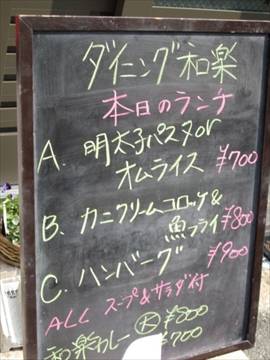 ダイニング 和楽
本日のランチ
A. 明太子パスタor
オムライス ¥700
B. カニクリームコロッケ&
魚フライ ¥800
C. ハンバーグ ¥900
ALL スープ&サラダ付
和楽カレー 大 ¥800
¥700